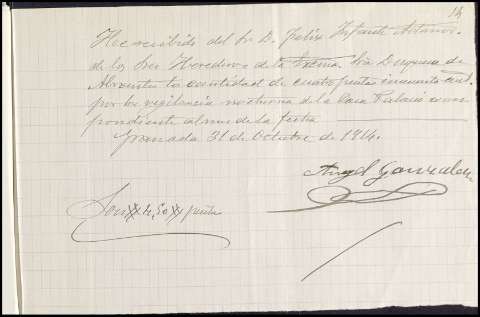 14
He recibido del Sr. D. Felix Infante
de los Sres Herederos de la Exema. Sra Duquesa de
Abrantes la cantidad de cuatro pesetas cincuenta cent.
por la vigilancia nocturna de la Casa Palacio corres
pondiente al mes de la fecha
Granada 31 de Octubre de 1914.
Angel Gonzalez
Son 4,50 ptas